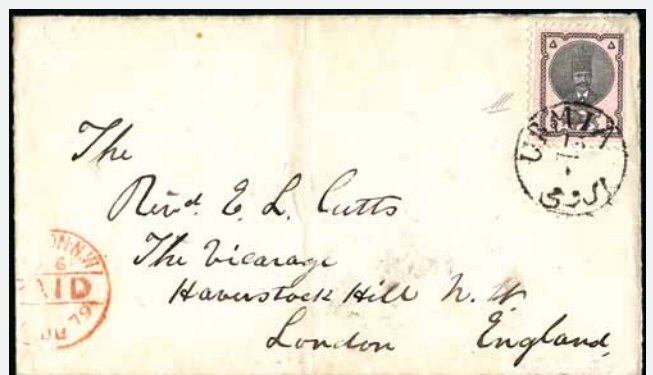 ۵ ۵
URMIA
The
Revd. E. L. Cutts
The Vicarage
Haverstock Hill N. W
London England
ON·N.W
6
AID
79